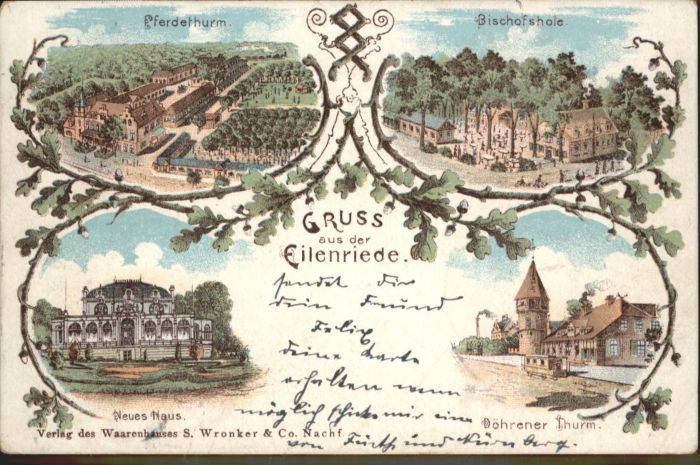 Pferdethurm.
Bischofshole.
GRUSS
aus der
Eilenriede.
sendet Dir
dein Freund
Felix
deine Karte
erhalten wenn
möglich schicke mir eine
von Fürth und Nürnberg.
Neues Haus.
Döhrener Thurm.
Verlag des Waarenhauses S. Wronker & Co. Nachf.